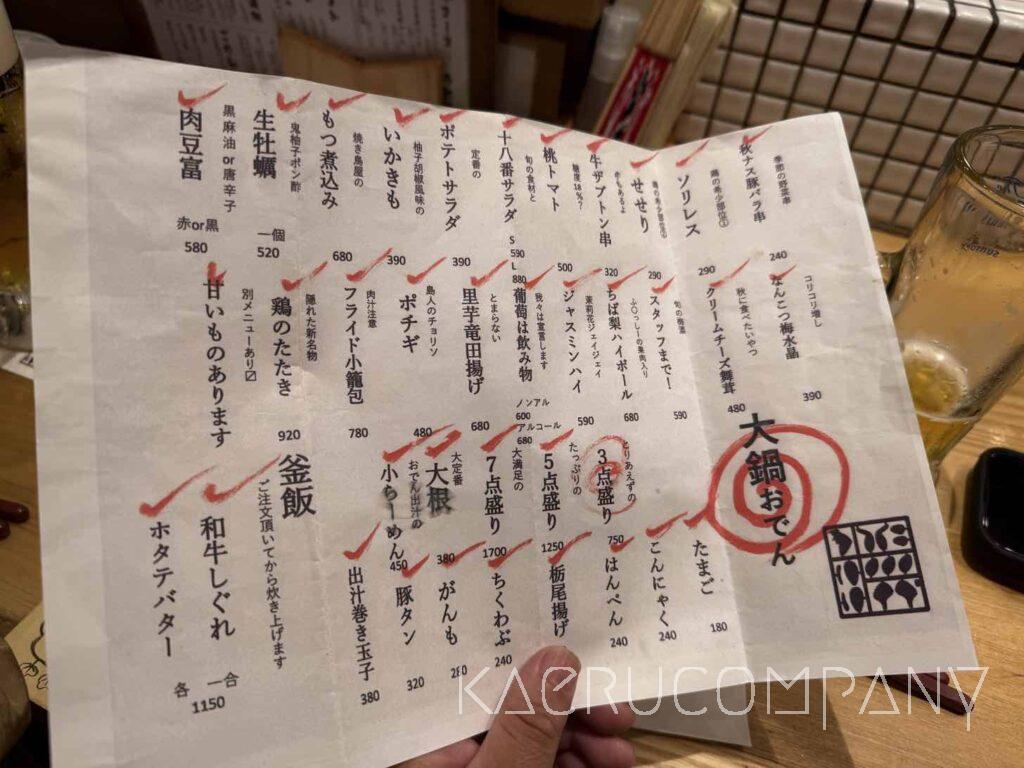 季節の野菜串
秋ナス豚バラ串
240
鶏の希少部位①
ソリレス
290
せせり
290
牛ザブトン串
320
糖度18%?
桃トマト
500
旬の食材と
十八番サラダ
S 590
L 880
定番の
ポテトサラダ
390
柚子胡椒風味の
いかきも
390
焼き鳥屋の
もつ煮込み
680
鬼柚子ポン酢
生牡蠣
一個
520
黒麻油or唐辛子
肉豆富
赤or黒
580
コリコリ増し
なんこつ梅水晶
390
秋に食べたいやつ
クリームチーズ舞茸
480
スタッフまで!
590
ちば梨ハイボール
680
茉莉花ジェイジェイ
ジャスミンハイ
590
我々は宣言します
葡萄は飲み物
ノンアル
600
アルコール
680
とまらない
里芋竜田揚げ
680
島人のチョリソ
ポチギ
480
肉汁注意
フライド小籠包
780
隠れた新名物
鶏のたたき
920
別メニューあり〼
甘いものあります
大鍋おでん
とりあえずの
3点盛り
750
たっぷりの
5点盛り
1250
大満足の
7点盛り
1700
大定番
大根
380
おでん出汁の
小らーめん
450
たまご
180
こんにゃく
240
はんぺん
240
栃尾揚げ
ちくわぶ
240
がんも
280
豚タン
320
出汁巻き玉子
380
釜飯
ご注文頂いてから炊き上げます
和牛しぐれ
ホタテバター
各 一合
1150
KAERUCOMPANY